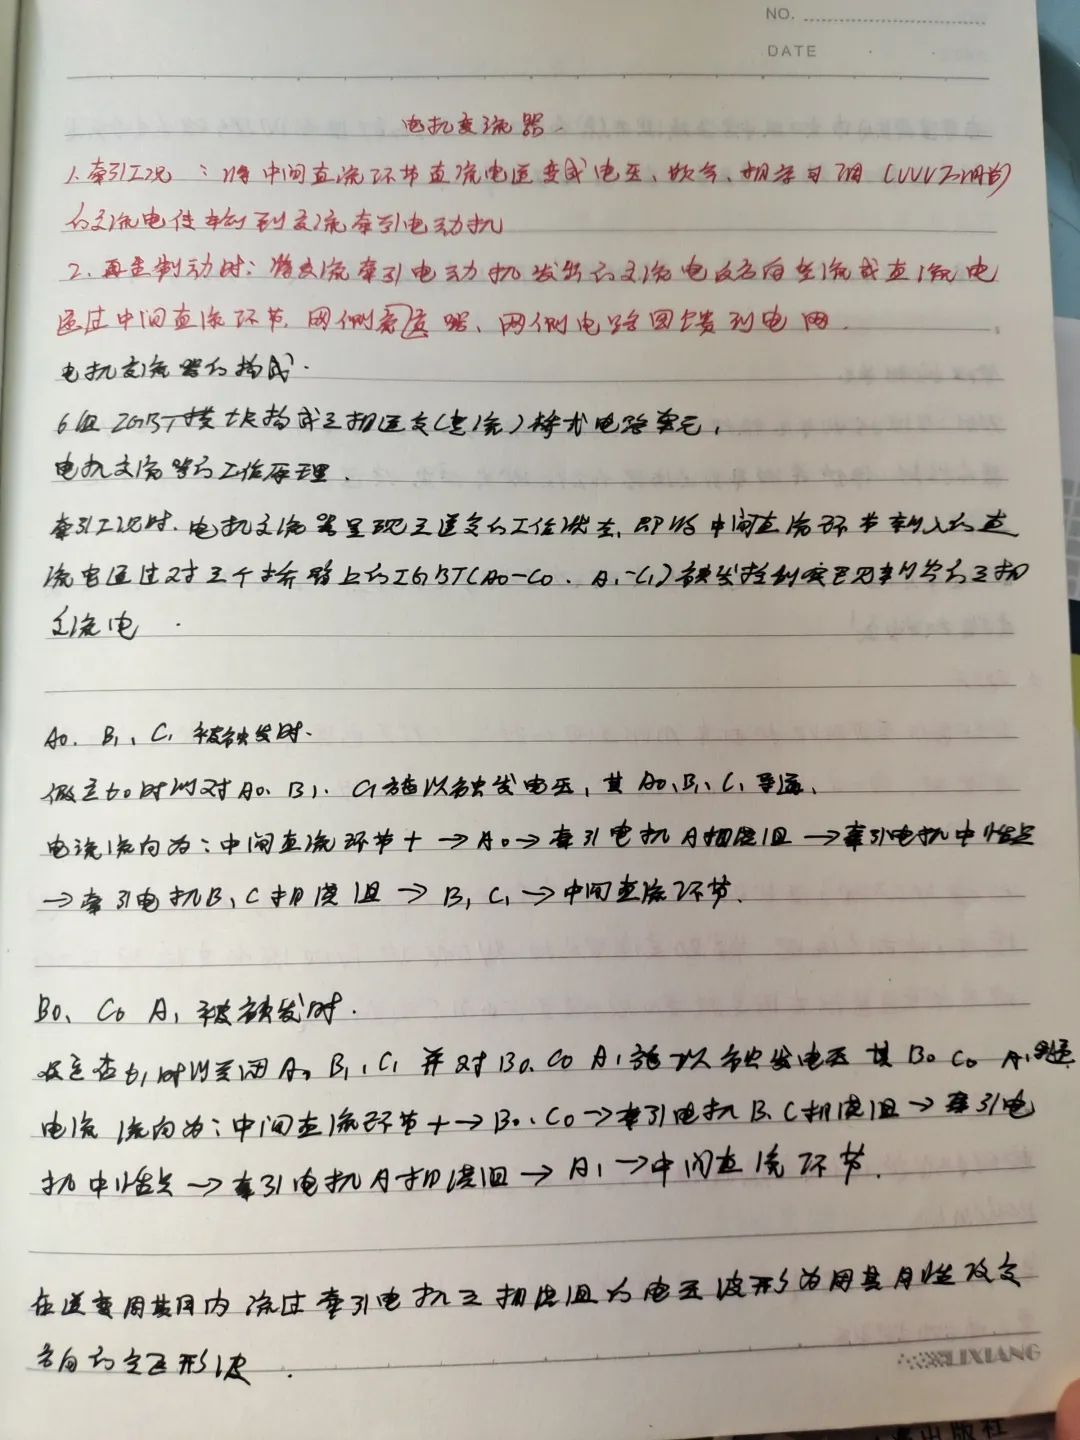 NO.
DATE
电机变流器.
1.牵引工况：将中间直流环节直流电逆变成电压、频率、相序可调(VVVF调节)
的交流电供给到交流牵引电动机
2.再生制动时：将交流牵引电动机发出的交流电反方向整流成直流电
通过中间直流环节.网侧变流器、网侧电路回馈到电网.
电机变流器的构成.
6组IGBT模块构成三相逆变(整流)桥式电路单元,
电机变流器的工作原理.
牵引工况时.电机变流器呈现三逆变的工作状态,即将中间直流环节输入的直
流电通过对三个桥路上的IGBT(A0-C0、A1-C1)触发控制实现输出的三相
交流电.
A0、B1、C1被触发时.
假定t0时刻对A0、B1、C1施以触发电压,其A0、B1、C1导通,
电流流向为:中间直流环节+→A0→牵引电机A相绕组→牵引电机中性点
→牵引电机B、C相绕组→B1 C1→中间直流环节.
B0、C0 A1被触发时.
设定在t1时刻关闭A0 B1、C1并对B0、C0 A1施以触发电压其B0 C0 A1导通
电流流向为:中间直流环节+→B0、C0→牵引电机B、C相绕组→牵引电
机中性点→牵引电机A相绕组→A1→中间直流环节.
在逆变周期内流过牵引电机三相绕组的电压波形为周期性改变
方向的交变形波.
LIXIANG
出版社